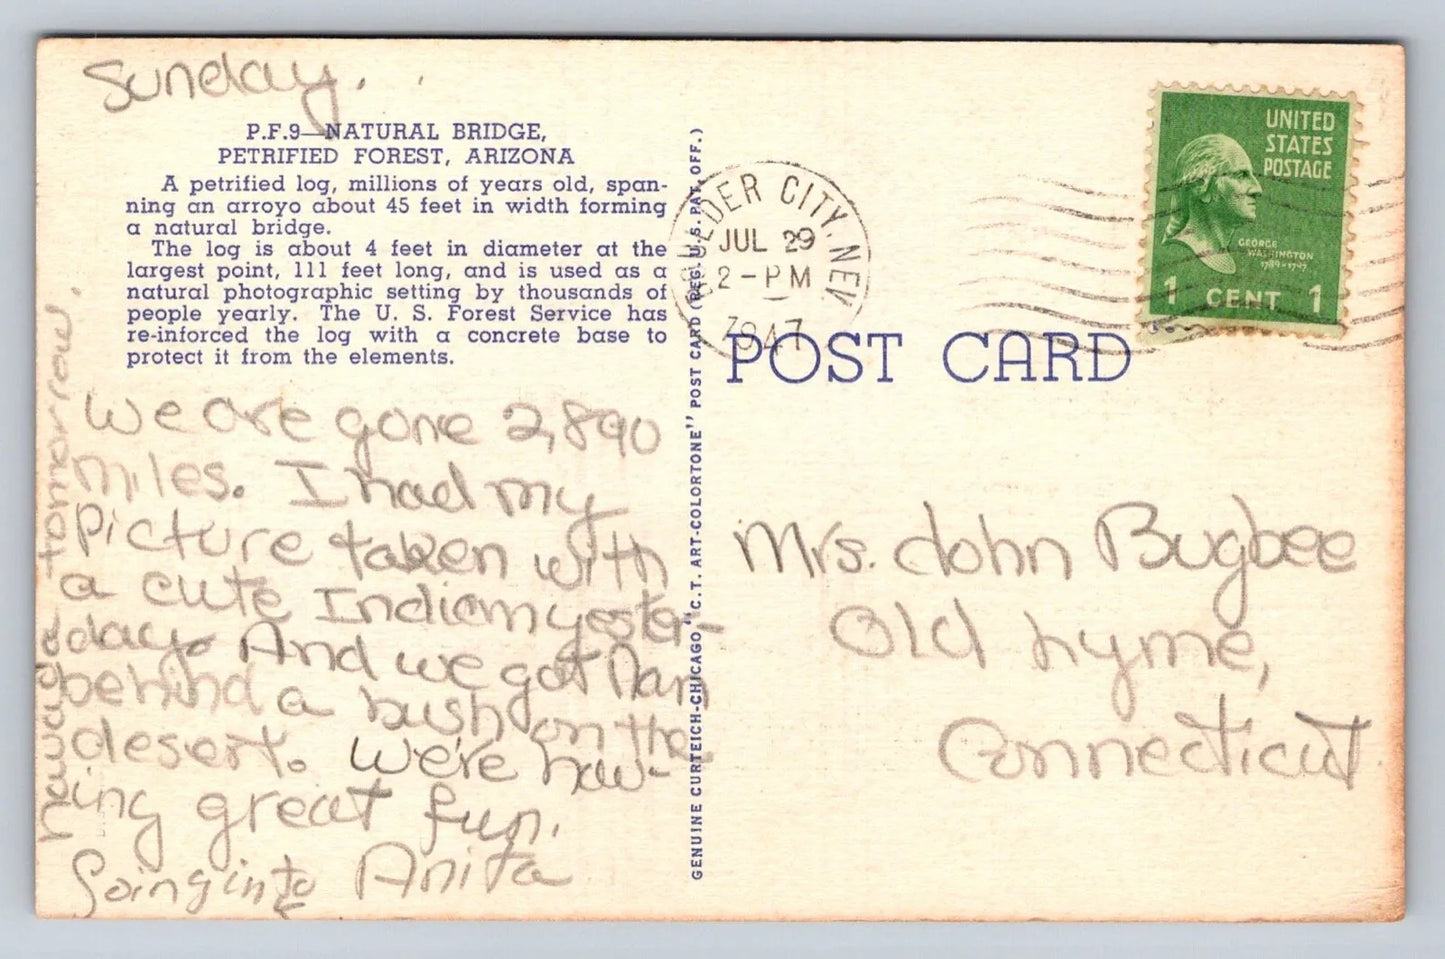 Sunday.
P.F.9—NATURAL BRIDGE,
PETRIFIED FOREST, ARIZONA
A petrified log, millions of years old, span-
ning an arroyo about 45 feet in width forming
a natural bridge.
The log is about 4 feet in diameter at the
largest point, 111 feet long, and is used as a
natural photographic setting by thousands of
people yearly. The U. S. Forest Service has
re-inforced the log with a concrete base to
protect it from the elements.
We are gone 2,890
miles. I had my
picture taken with
a cute Indian yester-
day. And we got
behind a bush on the
desert. We're hav-
ing great fun.
Anita
Going into
nevada tomorrow.
GENUINE CURTEICH-CHICAGO "C.T. ART-COLORTONE" POST CARD (REG. U.S. PAT. OFF.)
BOULDER CITY. NEV.
JUL 29
2-PM
1947
UNITED
STATES
POSTAGE
GEORGE
WASHINGTON
1789-1797
1 CENT 1
POST CARD
Mrs. John Bugbee
Old Lyme,
Connecticut.